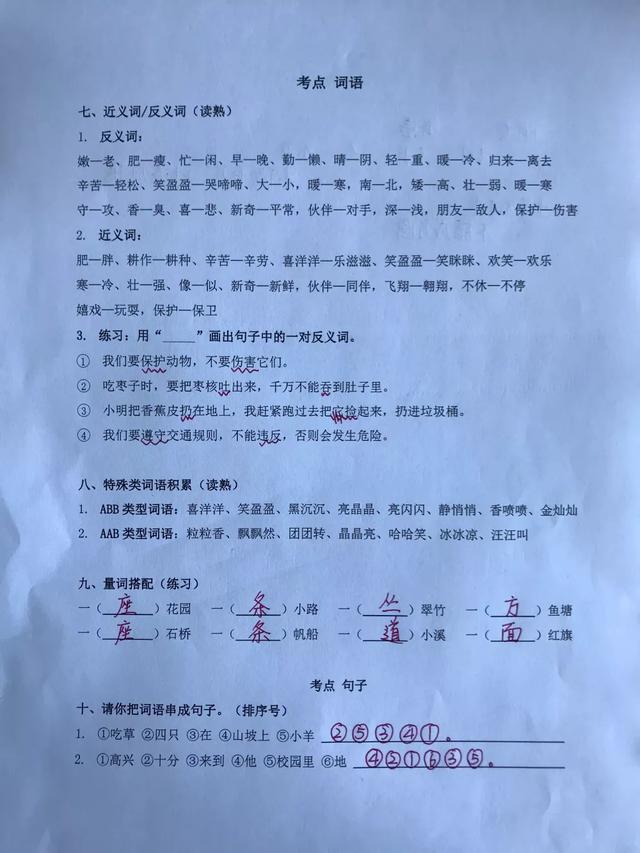 考点 词语
七、近义词/反义词（读熟）
1. 反义词：
嫩—老、肥—瘦、忙—闲、早—晚、勤—懒、晴—阴、轻—重、暖—冷、归来—离去
辛苦—轻松、笑盈盈—哭啼啼、大—小，暖—寒，南—北，矮—高、壮—弱、暖—寒
守—攻、香—臭、喜—悲、新奇—平常，伙伴—对手，深—浅，朋友—敌人，保护—伤害
2. 近义词：
肥—胖、耕作—耕种、辛苦—辛劳、喜洋洋—乐滋滋、笑盈盈—笑眯眯、欢笑—欢乐
寒—冷、壮—强、像—似、新奇—新鲜，伙伴—同伴，飞翔—翱翔，不休—不停
嬉戏—玩耍，保护—保卫
3. 练习：用“_____”画出句子中的一对反义词。
① 我们要保护动物，不要伤害它们。
② 吃枣子时，要把枣核吐出来，千万不能吞到肚子里。
③ 小明把香蕉皮扔在地上，我赶紧跑过去把它捡起来，扔进垃圾桶。
④ 我们要遵守交通规则，不能违反，否则会发生危险。
八、特殊类词语积累（读熟）
1. ABB 类型词语：喜洋洋、笑盈盈、黑沉沉、亮晶晶、亮闪闪、静悄悄、香喷喷、金灿灿
2. AAB 类型词语：粒粒香、飘飘然、团团转、晶晶亮、哈哈笑、冰冰凉、汪汪叫
九、量词搭配（练习）
一（座）花园 一（条）小路 一（丛）翠竹 一（方）鱼塘
一（座）石桥 一（条）帆船 一（道）小溪 一（面）红旗
考点 句子
十、请你把词语串成句子。（排序号）
1. ①吃草 ②四只 ③在 ④山坡上 ⑤小羊 ②⑤③④①。
2. ①高兴 ②十分 ③来到 ④他 ⑤校园里 ⑥地 ④②①⑥③⑤。